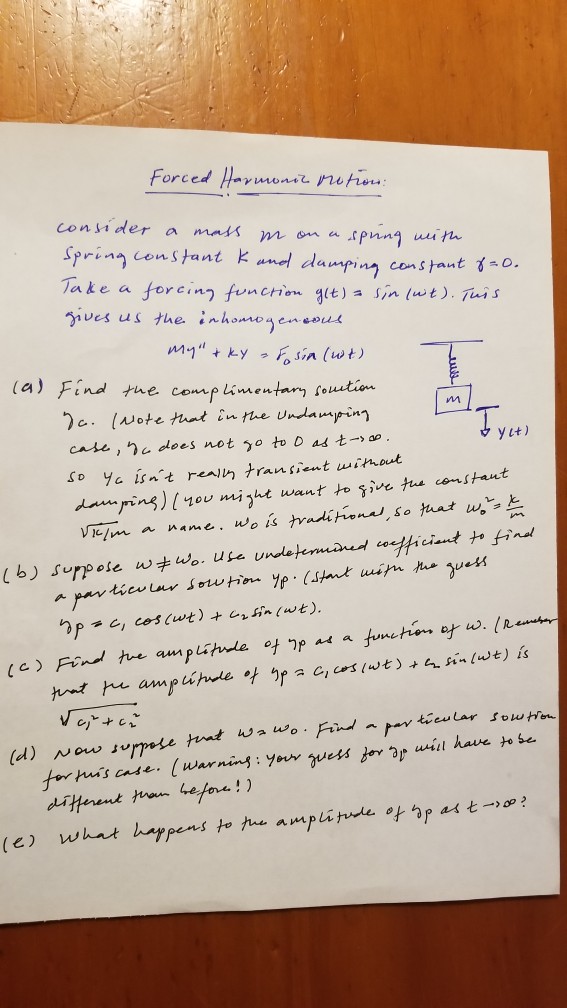 Forced Harmonic Motion:
consider a mass m on a spring with
Spring constant K and damping constant γ=0.
Take a forcing function g(t) = sin(wt). This
gives us the inhomogeneous
my" + ky = F₀ sin(wt)
(a) Find the complimentary solution
yc. (Note that in the undamping
case, yc does not go to 0 as t→∞.
so yc isn't really transient without
damping) (you might want to give the constant
√k/m a name. w₀ is traditional, so that w₀² = k/m
m
y(t)
(b) suppose w ≠ w₀. Use undetermined coefficient to find
a particular solution yp. (start with the guess
yp = c₁ cos(wt) + c₂ sin(wt).
(c) Find the amplitude of yp as a function of w. (Remember
that the amplitude of yp = c₁ cos(wt) + c₂ sin(wt) is
√c₁² + c₂²
(d) Now suppose that w = w₀. Find a particular solution
for this case. (warning: your guess for yp will have to be
different than before!)
(e) What happens to the amplitude of yp as t→∞?